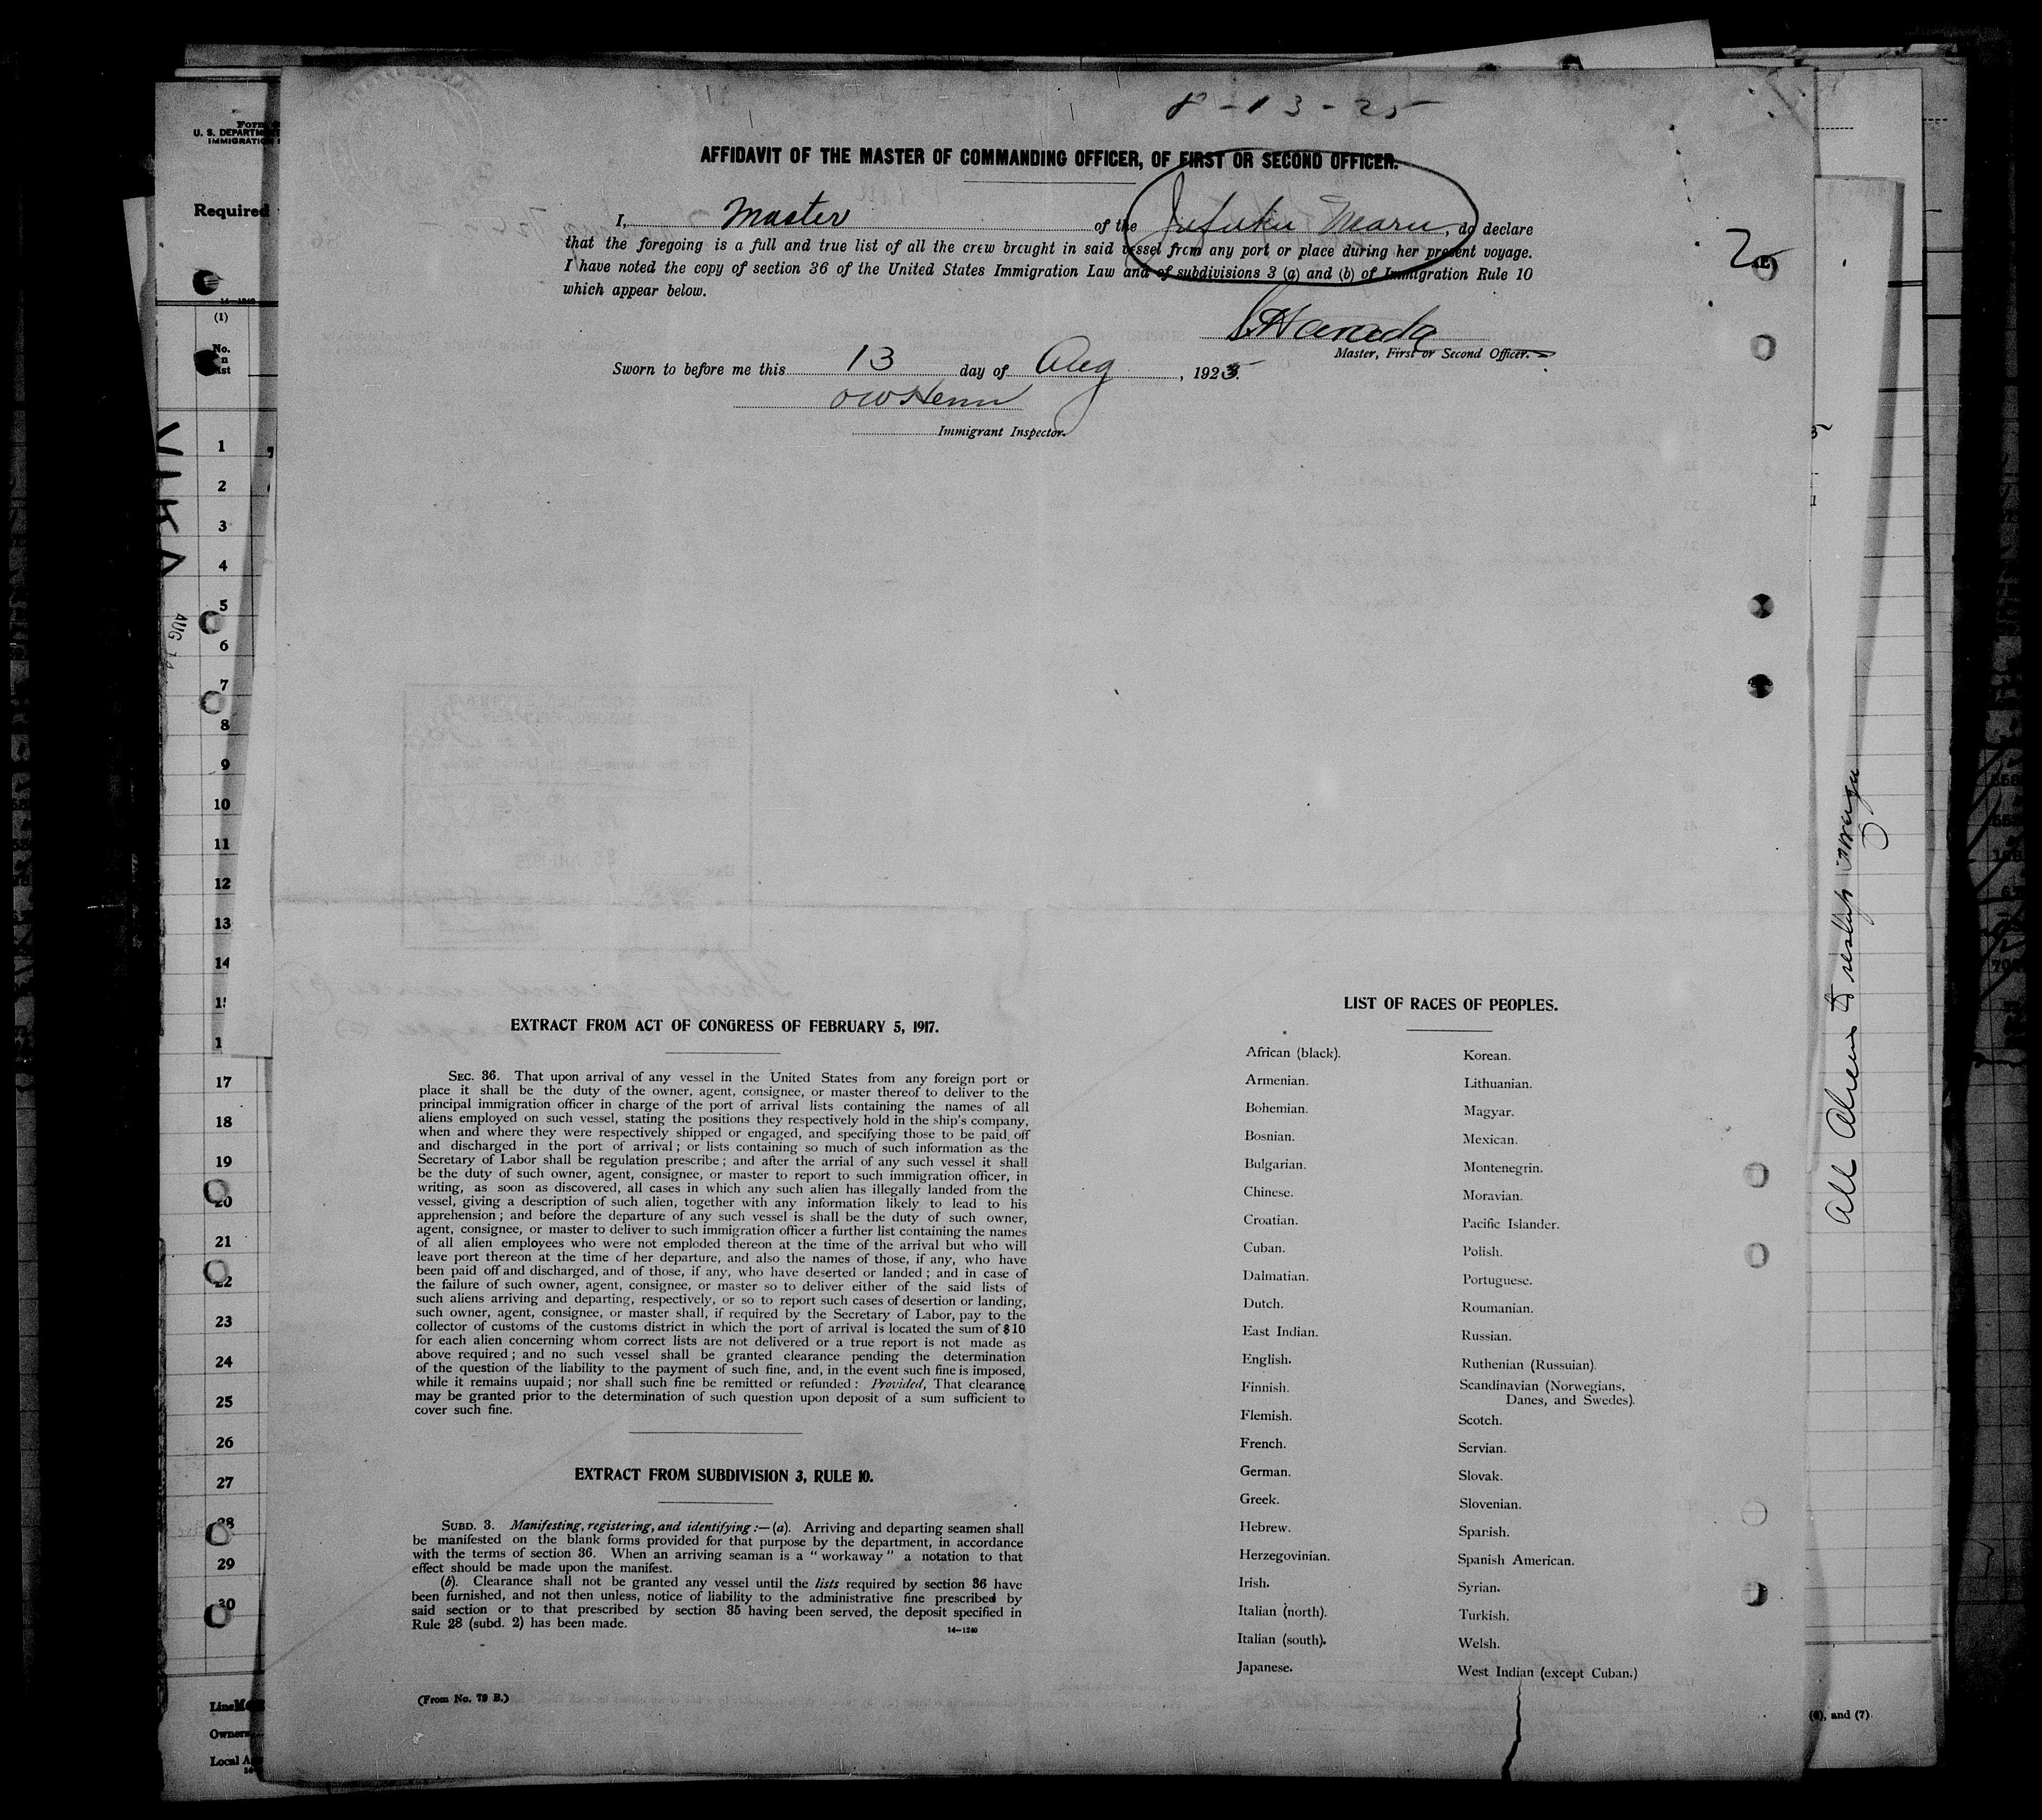 8-13-25
AFFIDAVIT OF THE MASTER OF COMMANDING OFFICER, OF FIRST OR SECOND OFFICER.
I, Master of the Jufuku Maru, do declare
that the foregoing is a full and true list of all the crew brought in said vessel from any port or place during her present voyage.
I have noted the copy of section 36 of the United States Immigration Law and of subdivisions 3 (a) and (b) of Immigration Rule 10
which appear below.
Harada
Master, First or Second Officer.
Sworn to before me this 13 day of Aug, 1925.
Immigrant Inspector.
EXTRACT FROM ACT OF CONGRESS OF FEBRUARY 5, 1917.
SEC. 36. That upon arrival of any vessel in the United States from any foreign port or
place it shall be the duty of the owner, agent, consignee, or master thereof to deliver to the
principal immigration officer in charge of the port of arrival lists containing the names of all
aliens employed on such vessel, stating the positions they respectively hold in the ship's company,
when and where they were respectively shipped or engaged, and specifying those to be paid off
and discharged in the port of arrival; or lists containing so much of such information as the
Secretary of Labor shall be regulation prescribe; and after the arrial of any such vessel it shall
be the duty of such owner, agent, consignee, or master to report to such immigration officer, in
writing, as soon as discovered, all cases in which any such alien has illegally landed from the
vessel, giving a description of such alien, together with any information likely to lead to his
apprehension; and before the departure of any such vessel is shall be the duty of such owner,
agent, consignee, or master to deliver to such immigration officer a further list containing the names
of all alien employees who were not emploded thereon at the time of the arrival but who will
leave port thereon at the time of her departure, and also the names of those, if any, who have
been paid off and discharged, and of those, if any, who have deserted or landed; and in case of
the failure of such owner, agent, consignee, or master so to deliver either of the said lists of
such aliens arriving and departing, respectively, or so to report such cases of desertion or landing,
such owner, agent, consignee, or master shall, if required by the Secretary of Labor, pay to the
collector of customs of the customs district in which the port of arrival is located the sum of $10
for each alien concerning whom correct lists are not delivered or a true report is not made as
above required; and no such vessel shall be granted clearance pending the determination
of the question of the liability to the payment of such fine, and, in the event such fine is imposed,
while it remains uupaid; nor shall such fine be remitted or refunded: Provided, That clearance
may be granted prior to the determination of such question upon deposit of a sum sufficient to
cover such fine.
EXTRACT FROM SUBDIVISION 3, RULE 10.
SUBD. 3. Manifesting, registering, and identifying:—(a). Arriving and departing seamen shall
be manifested on the blank forms provided for that purpose by the department, in accordance
with the terms of section 36. When an arriving seaman is a "workaway" a notation to that
effect should be made upon the manifest.
(b). Clearance shall not be granted any vessel until the lists required by section 36 have
been furnished, and not then unless, notice of liability to the administrative fine prescribed by
said section or to that prescribed by section 35 having been served, the deposit specified in
Rule 28 (subd. 2) has been made.
14—1240
(From No. 79 B.)
LIST OF RACES OF PEOPLES.
African (black).
Armenian.
Bohemian.
Bosnian.
Bulgarian.
Chinese.
Croatian.
Cuban.
Dalmatian.
Dutch.
East Indian.
English.
Finnish.
Flemish.
French.
German.
Greek.
Hebrew.
Herzegovinian.
Irish.
Italian (north).
Italian (south).
Japanese.
Korean.
Lithuanian.
Magyar.
Mexican.
Montenegrin.
Moravian.
Pacific Islander.
Polish.
Portuguese.
Roumanian.
Russian.
Ruthenian (Russuian).
Scandinavian (Norwegians,
Danes, and Swedes).
Scotch.
Servian.
Slovak.
Slovenian.
Spanish.
Spanish American.
Syrian.
Turkish.
Welsh.
West Indian (except Cuban.)
Form
U. S. DEPARTM
IMMIGRATION
Required
14—1240
(1)
No.
1
2
3
4
5
6
7
8
9
10
11
12
13
14
17
18
19
20
21
22
23
24
25
26
27
28
29
30
Line
Owners
Local A
AUG 14
All Aliens to reship foreign
(6), and (7)